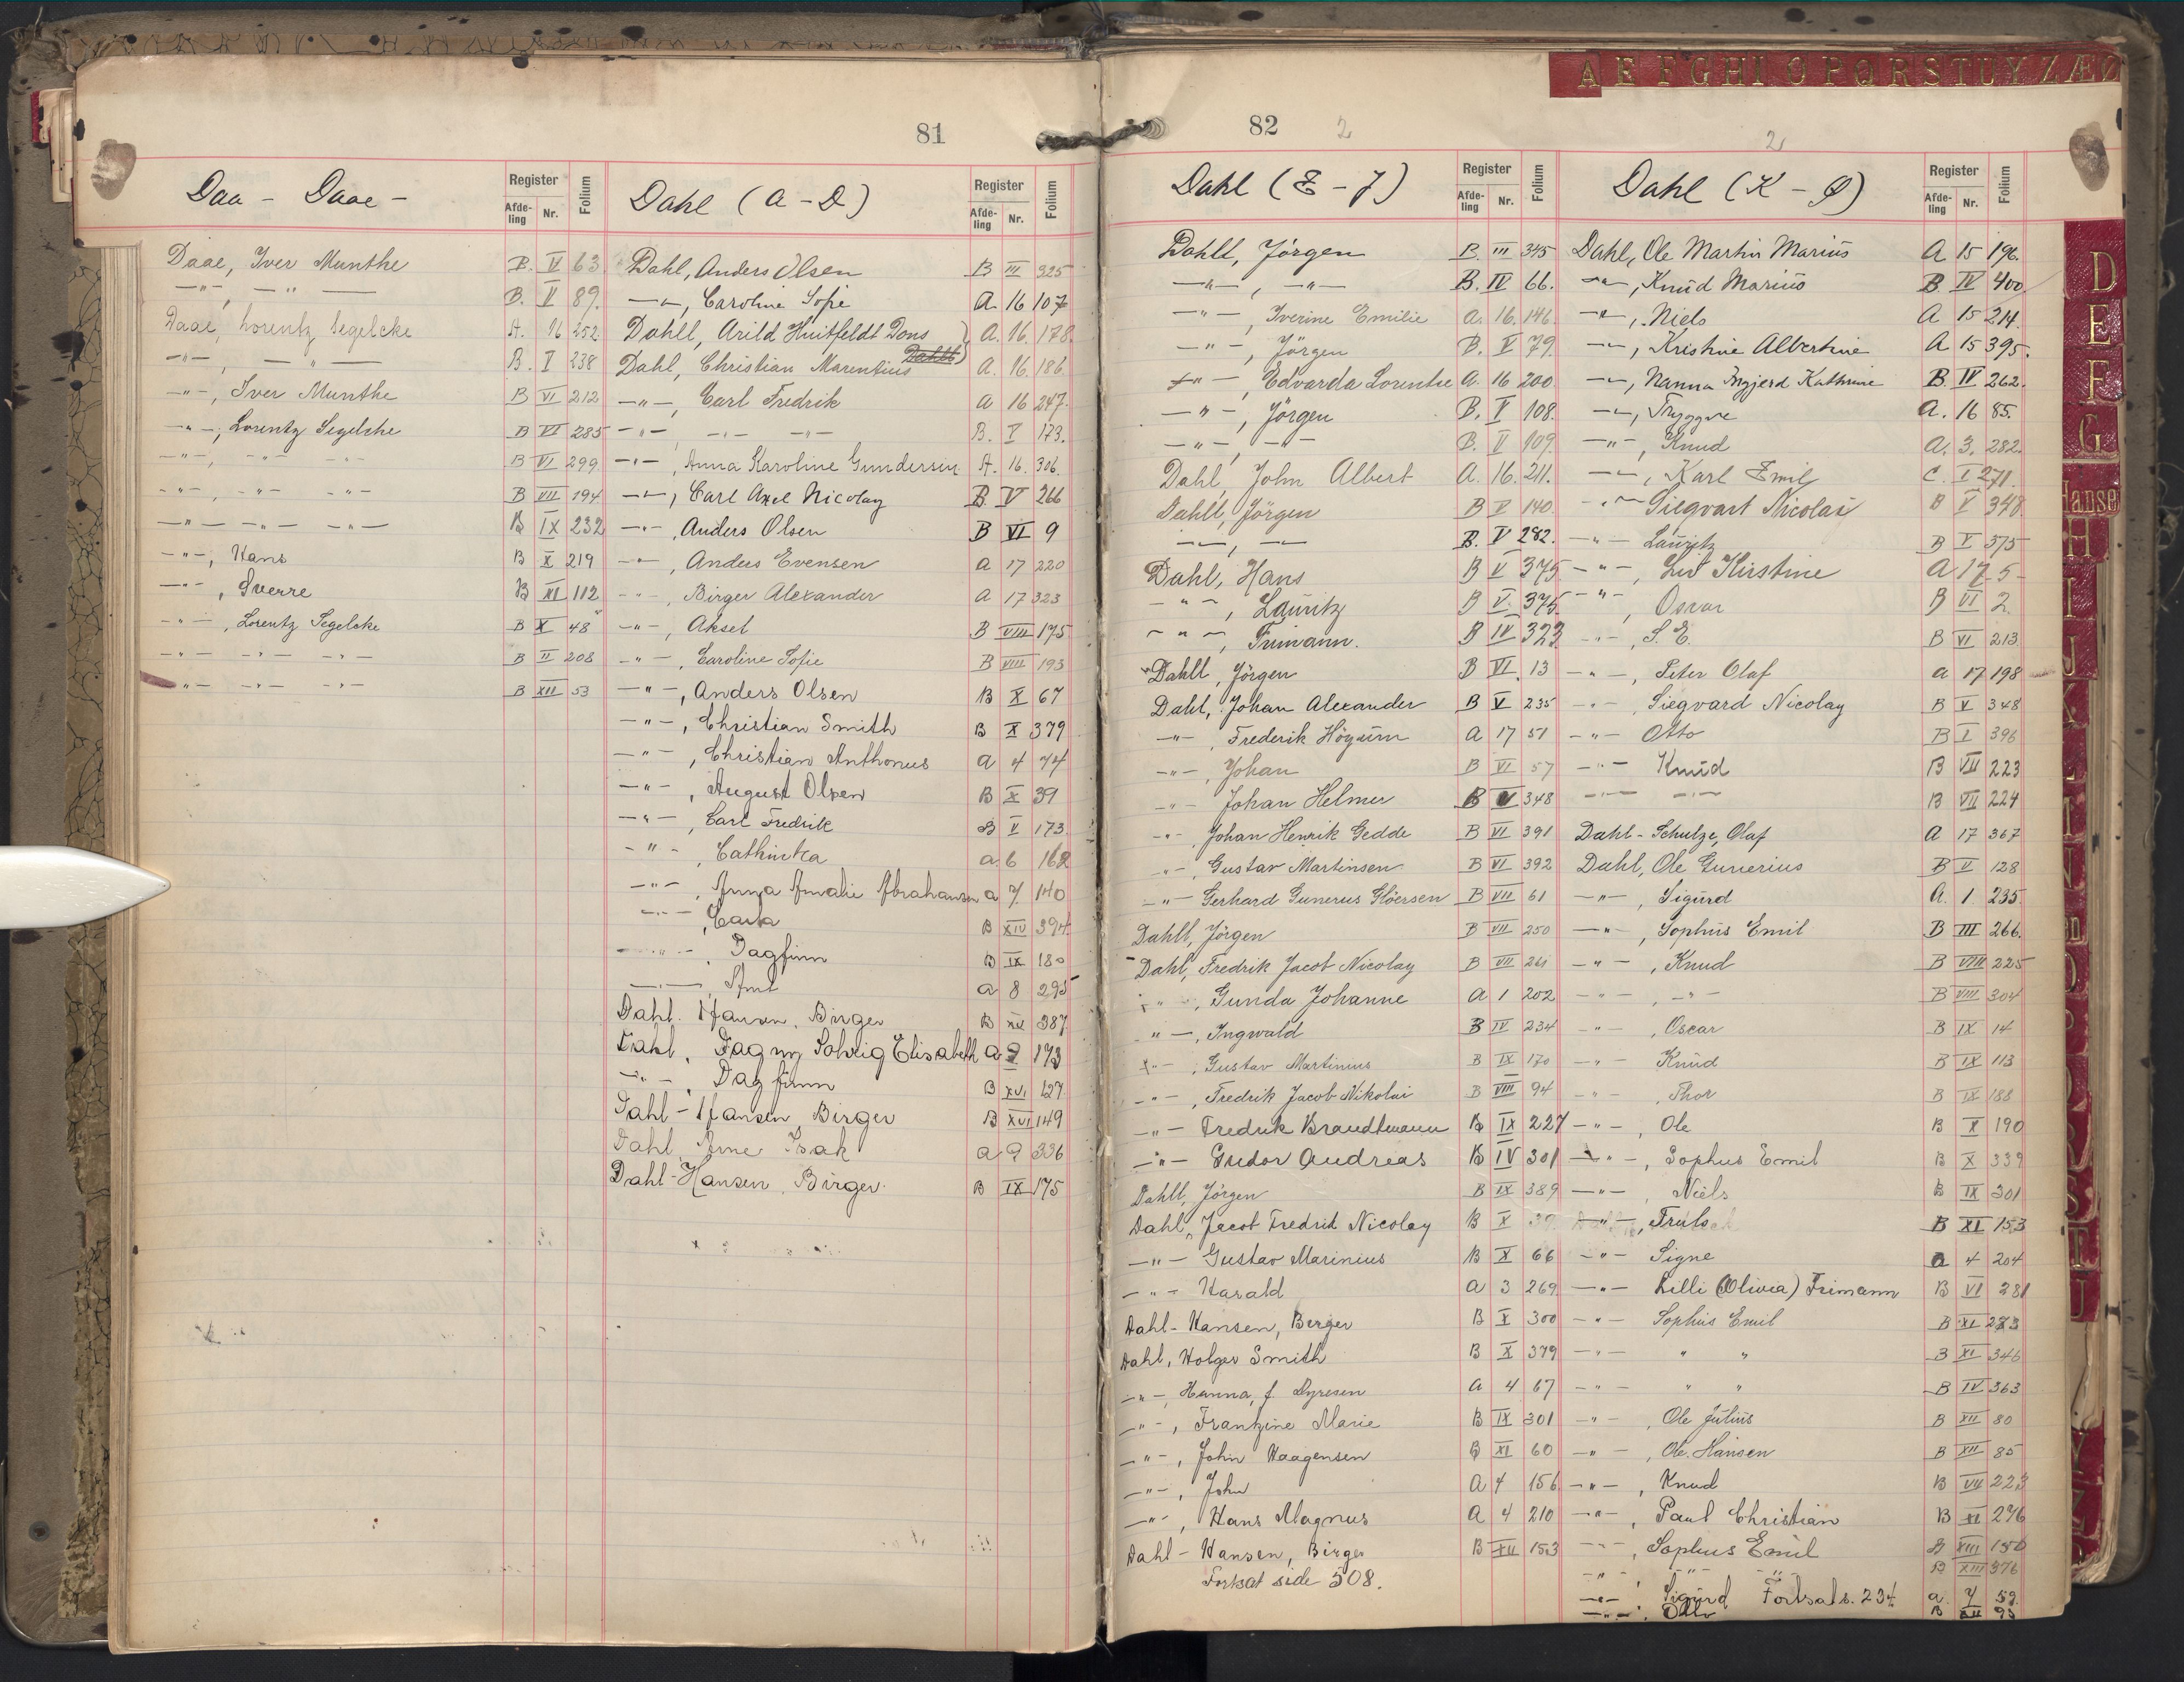 81
Daa - Daae -
Register
Afde-
ling
Nr.
Folium
Daae, Iver Munthe B. V 63
—"—, —"— B. V 89.
Daae, Lorentz Segelcke A. 16 252
—"—, —"— B. V 238
—"—, Iver Munthe B VI 212
—"—, Lorentz Segelcke B VI 285
—"—, —"— —"— B VI 299
—"—, —"— —"— B VII 194
—"— —"— —"— B IX 232
—"—, Hans B X 219
—"—, Sverre B XI 112
—"—, Lorentz Segelcke B X 48
—"— —"— —"— B II 208
—"— —"— —"— B XII 53
Dahl (A - D)
Register
Afde-
ling
Nr.
Folium
Dahl, Anders Olsen B III 325
—"—, Caroline Sofie A. 16 107
Dahll, Arild Huitfeldt Dons A. 16. 178.
Dahl, Christian Marentius A. 16. 186.
—"—, Carl Fredrik A 16 247.
—"— —"— —"— B. V 173.
—"—, Anna Karoline Gundersen A. 16. 306.
—"—, Carl Axel Nicolay B. V 266
—"—, Anders Olsen B VI 9
—"—, Anders Evensen A 17 220
—"—, Birger Alexander A 17 323
—"—, Aksel B VIII 175
—"—, Caroline Sofie B VIII 193
—"—, Anders Olsen B X 67
—"—, Christian Smith B X 379
—"—, Christian Anthonus A 4 74
—"—, August Olsen B X 39
—"—, Carl Fredrik B V 173
—"—, Cathinka a. 6 162
—"—, Anna Amalie Abrahamsen a 7. 140
—"—, Carla B XIV 394
—"—, Dagfinn B IX 180
—"—, a 8 295
Dahl. Hansen, Birger B XII 387
Dahl, Dagny Solveig Elisabeth a 9 173
—"—, Dagfinn B XVI 127.
Dahl - Hansen, Birger B XVI 149
Dahl, Arne Isak a 9 336
Dahl-Hansen, Birger. B IX 175
82 2
Dahl (E - J)
Register
Afde-
ling
Nr.
Folium
Dahll, Jörgen B. III 345
—"—, —"— B. IV 66.
—"—, Iverine Emilie A. 16. 146.
—"—, Jörgen B. V 79.
—"—, Edvarda Lorentse A. 16 200
—"—, Jörgen B. V 108.
—"—, —"— B. V 109.
Dahl, John Albert A. 16. 211.
Dahll, Jörgen B V 140.
—"—, —"— B. V 282.
Dahl, Hans B V 375
—"—, Lauritz B V. 375.
—"—, Frimann. B IV 323
Dahll, Jörgen B VI. 13
Dahl, Johan Alexander B V 235
—"—, Frederik Höyum A 17 51
—"—, Johan B VI 57
—"— Johan Helmer B V 348
—"— Johan Henrik Gedde B VI 391
—"—, Gustav Martinsen B VI 392
—"— Gerhard Gunerus Flöersen B VII 61
Dahll, Jörgen B VII 250
Dahl, Fredrik Jacob Nicolay B VII 261
—"—, Gunda Johanne A 1 202
—"—, Ingwald B IV 234
—"—, Gustav Martinius B IX 170
—"—, Fredrik Jacob Nikolai B VIII 94
—"— Fredrik Brandtmann B IX 227
—"— Gudor Andreas B IV 301
Dahll, Jörgen B IX 389
Dahl, Jacob Fredrik Nicolay B X 39
—"— Gustav Marinius B X 66
—"— Harald A 3 269
Dahl-Hansen, Berger B X 300
Dahl, Holger Smith B X 379
—"—, Hanna, f. Dyresen A 4 67
—"—, Frantzine Marie B IX 301
—"—, John Haagensen B XI 60
—"—, John A 4 156
—"—, Hans Magnus A 4 210
Dahl - Hansen, Birger B XII 153
Fortsat side 508.
2
Dahl (K - Ø)
Register
Afde-
ling
Nr.
Folium
Dahl, Ole Martin Marius A 15 196.
—"—, Knud Marius B IV 400
—"—, Niels A 15 214.
—"—, Kristine Albertine A 15 395.
—"—, Nanna Ingjerd Kathrine B. IV 262.
—"—, Tryggve A. 16 85.
—"—, Knud A. 3. 282.
—"—, Karl Emil C. I 271.
—"— Siegvart Nicolai B V 348.
—"— Lauritz B V 375
—"—, Liv Kirstine A 17 5
—"—, Oscar B VI 2.
—"—, S. E. B VI 213
—"—, Peter Olaf A 17 198
—"—, Siegvard Nicolay B V 348
—"— Otto B I 396
—"— Knud B VII 223
—"— —"— B VII 224
Dahl-Schutze, Olaf A 17 367
Dahl, Ole Gunerius B V 128
—"—, Sigurd A. 1. 235.
—"—, Sophus Emil B III 266.
—"—, Knud B VIII 225
—"—, —"— B VIII 304
—"—, Oscar B IX 14
—"— Knud B IX 113
—"—, Thor B IX 188
—"—, Ole B X 190
—"—, Sophus Emil B X 339
—"—, Niels B IX 301
—"—, B XI 153
—"— Signe a 4 204
—"— Lilli (Olivia) Frimann B VI 281
—"— Sophus Emil B XI 283
—"— " " B XI 346
—"— " " B IV 363
—"—, Ole Julius B XII 80
—"—, Ole Hansen B XII 85
—"—, Knud B VII 223
—"—, Paul Christian B XI 296
—"—, Sophus Emil B XIII 150
—"— —"— —"— B XIII 376
—"—, Sigurd Fortsat s. 234 a. 7 59.
—"—, B XII 93
A E F G H I O P Q R S T U Y Z Æ Ø
D
E
F
G
Hanse
H
I
J
K